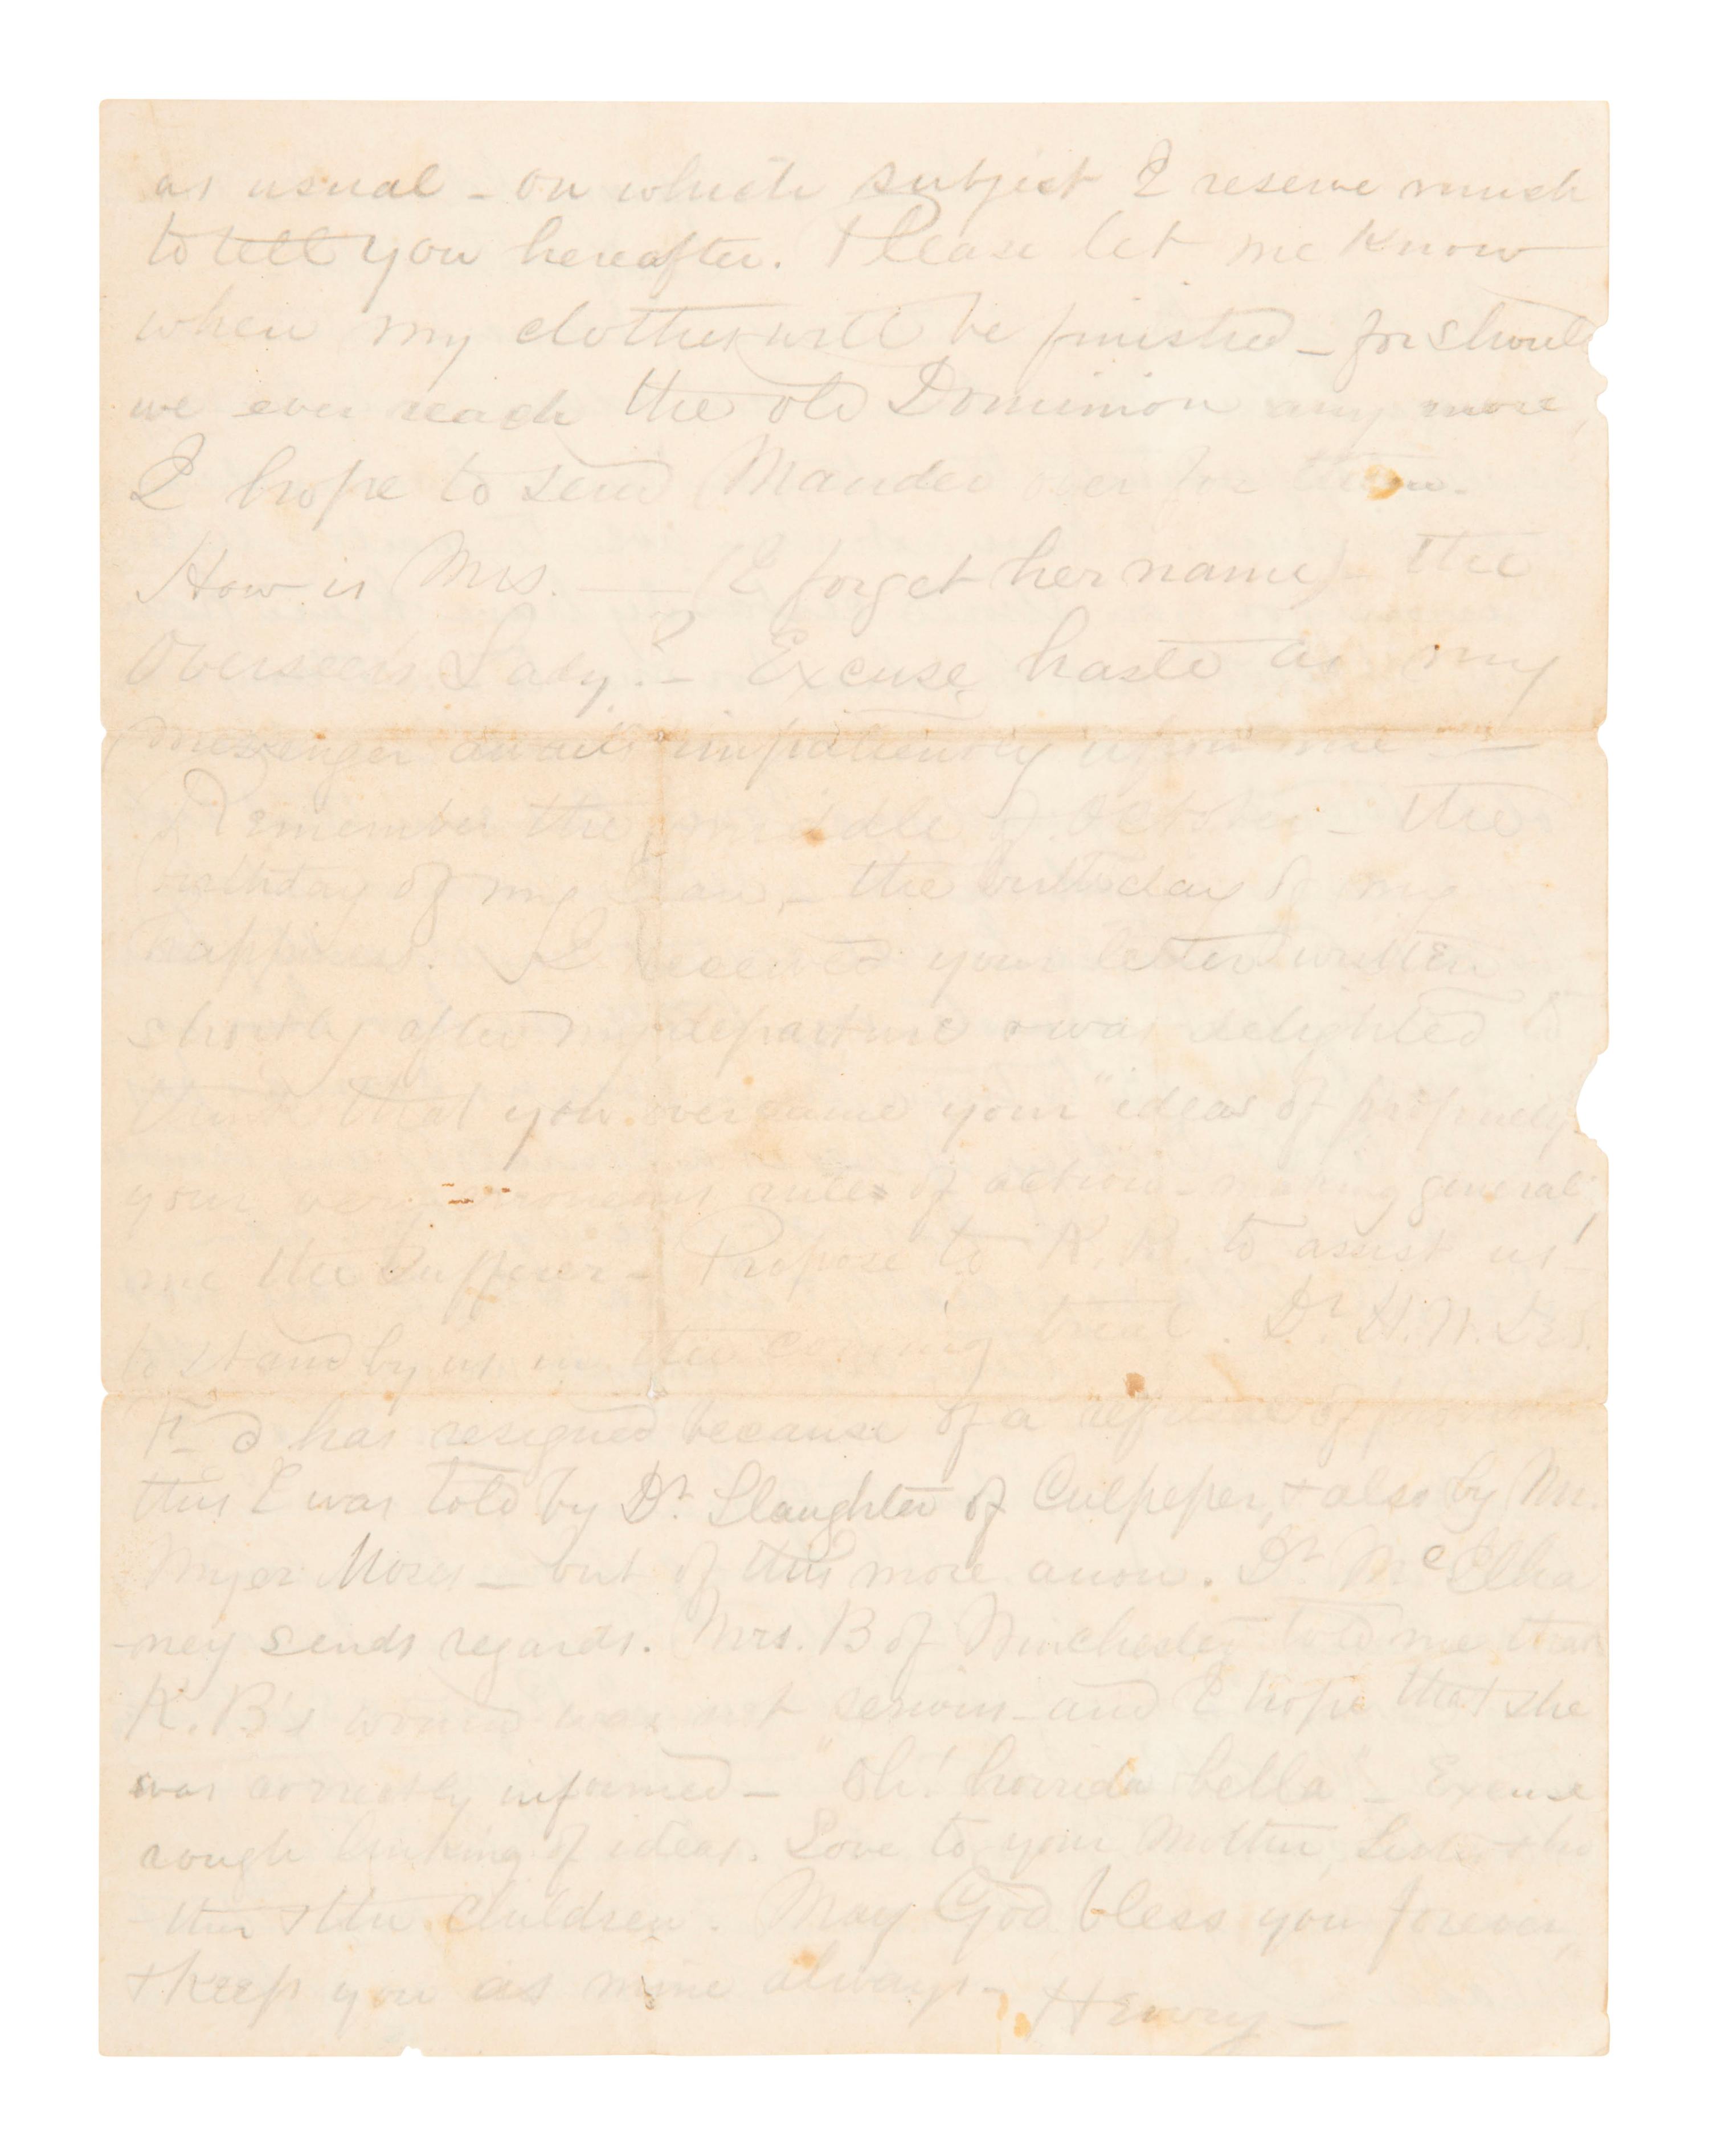 as usual - on which subject I reserve much
to tell you hereafter. Please let me know
when my clothes will be finished - for should
we ever reach the old Dominion any more,
I hope to send Mander over for them.
How is Mrs. —— (I forget her name) - the
Overseer's Lady? - Excuse haste as my
messenger awaits impatiently upon me -
Remember the middle of October - the
birthday of my - the birthday of my
happiness. I received your letter written
shortly after my departure & was delighted to
think that you overcame your "ideas of propriety"
your very erroneous rules of action - making general
me the sufferer - Propose to K. R. to assist us! -
to stand by us in the coming trial. Dr. H. W.
has resigned because of a refusal of
this I was told by Dr. Slaughter of Culpeper, & also by Mr.
Myer Moses - but of this more anon. Dr. McElha
-ney sends regards. Mrs. B of Winchester told me that
K. B's wound was not serious - and I hope that she
was correctly informed - "Oh! horrida bella" - Excuse
rough linking of ideas. Love to your Mother, Sister & bro
-ther & the children. May God bless you forever,
& keep you as mine always - Henry -